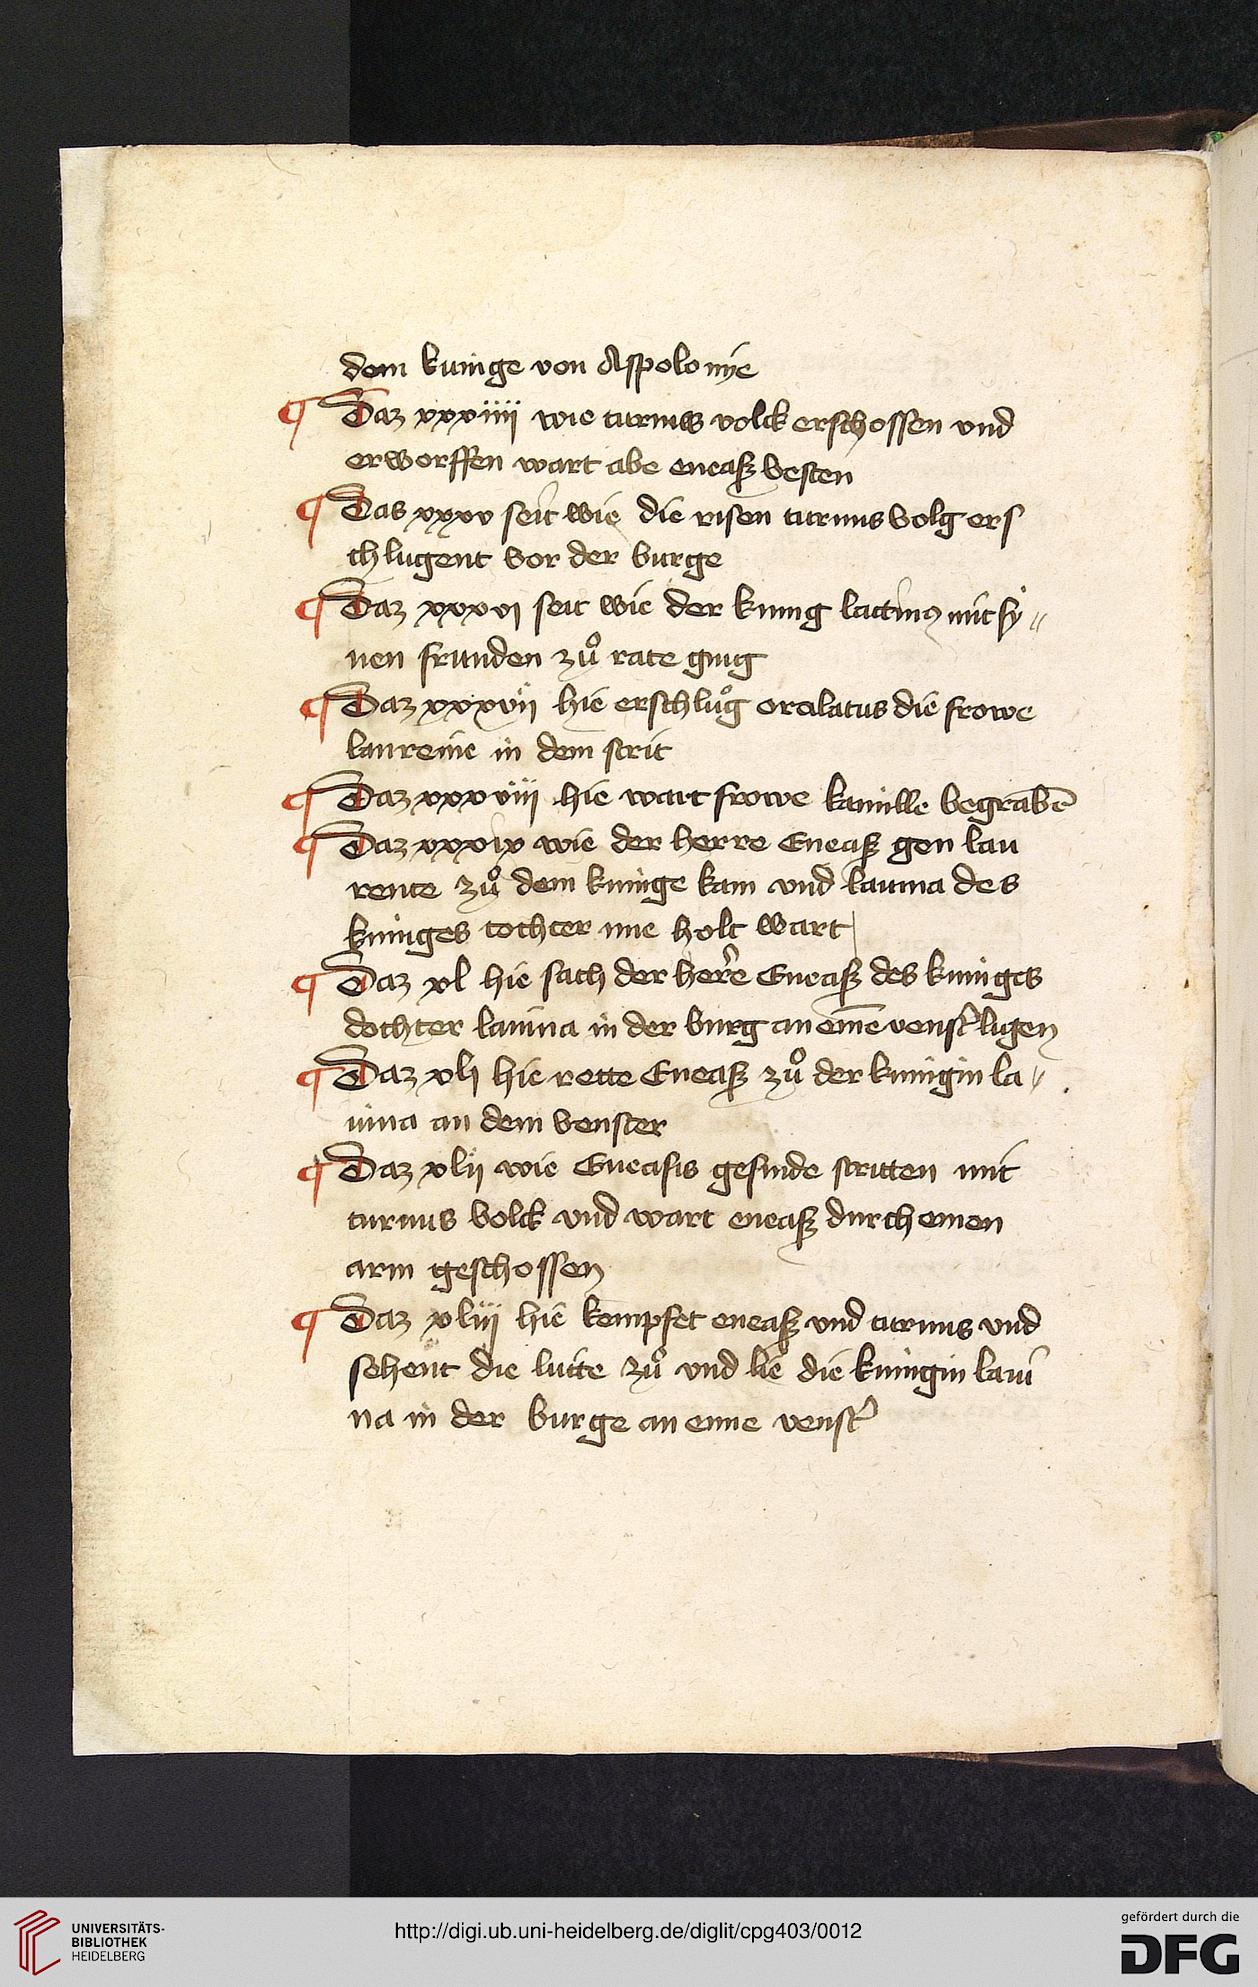 dem kunige von Aspolonÿe
¶ Daz xxxiiii wie turnus volck erschossen vnd
erworffen wart abe eneaß vesten
¶ Das xxxv seit wie die risen turnus volg ers
chlugent vor der burge
¶ Daz xxxvi seit wie der kunig latinus mit sÿ〃
nen frunden zuͦ rate ging
¶ Daz xxxvii hie erschluͦg orcilatus die frowe
laureine in dem strit
¶ Daz xxxviii hie wart frowe kamille begrabē
¶ Daz xxxix wie der herre Eneaß gen lau
rente zuͦ dem kunige kam vnd lauina des
kuniges tochter ime holt wart
¶ Daz xl hie sach der here Eneaß des kuniges
dochter lauina in der burg an eīme venst' ligen
¶ Daz xli hie rette Eneaß zuͦ der kunigin la〃
uina an dem venster
¶ Daz xlii wie Eneasis gesinde stritten mit
turnus volck vnd wart eneaß durch einen
arm geschossen
¶ Daz xliii hie kempfet eneaß vnd turnus vnd
sehent die lutte zuͦ vnd lie die kunigin laui
na in der burge an eime venst'
UNIVERSITÄTS-
BIBLIOTHEK
HEIDELBERG
http://digi.ub.uni-heidelberg.de/diglit/cpg403/0012
gefördert durch die
DFG